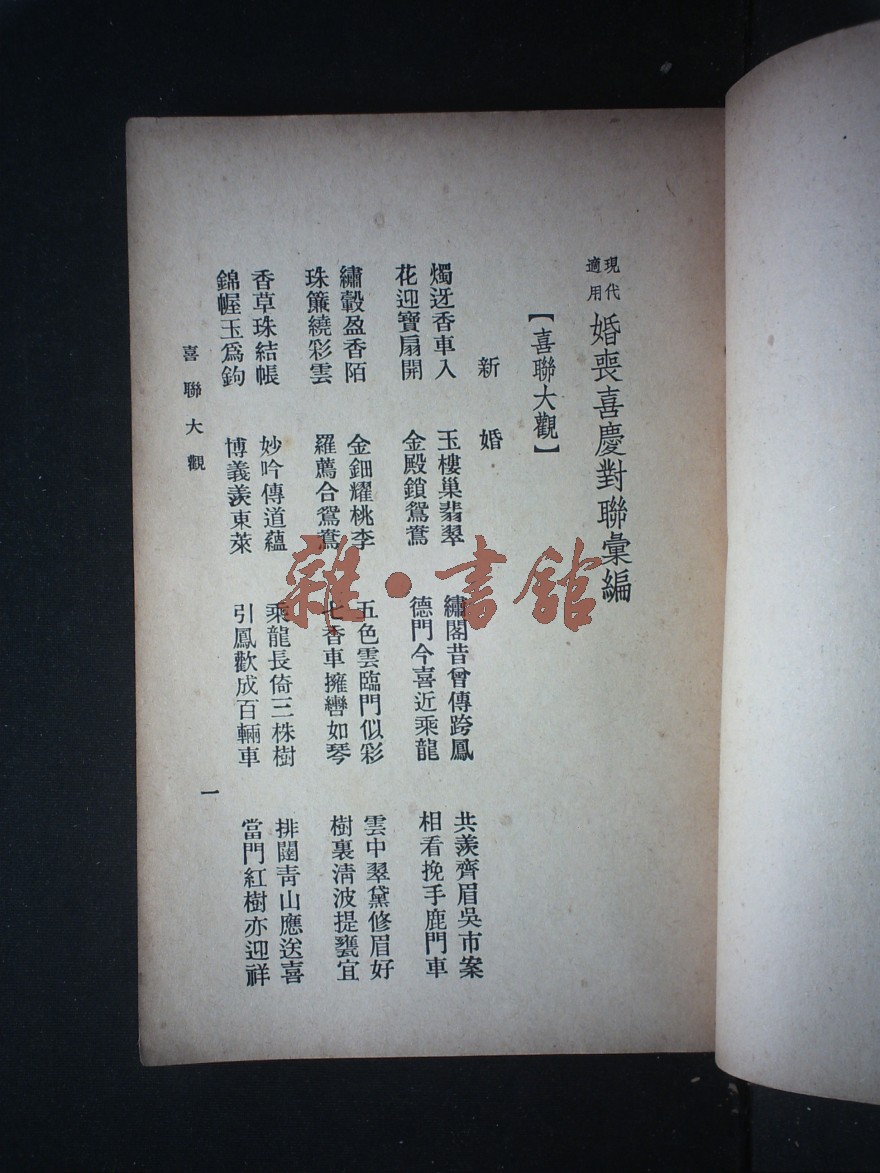 現代適用 婚喪喜慶對聯彙編
【喜聯大觀】
新婚
燭迓香車入 玉樓巢翡翠 繡閣昔曾傳跨鳳 共羨齊眉吳市案
花迎寶扇開 金殿鎖鴛鴦 德門今喜近乘龍 相看挽手鹿門車
繡轂盈香陌 金鈿耀桃李 五色雲臨門似彩 雲中翠黛修眉好
珠簾繞彩雲 羅薦合鴛鴦 七香車擁轡如琴 樹裏清波提甕宜
香草珠結帳 妙吟傳道蘊 乘龍長倚三株樹 排闥青山應送喜
錦幄玉爲鉤 博義羨東萊 引鳳歡成百輛車 當門紅樹亦迎祥
喜聯大觀 一
雜·書館